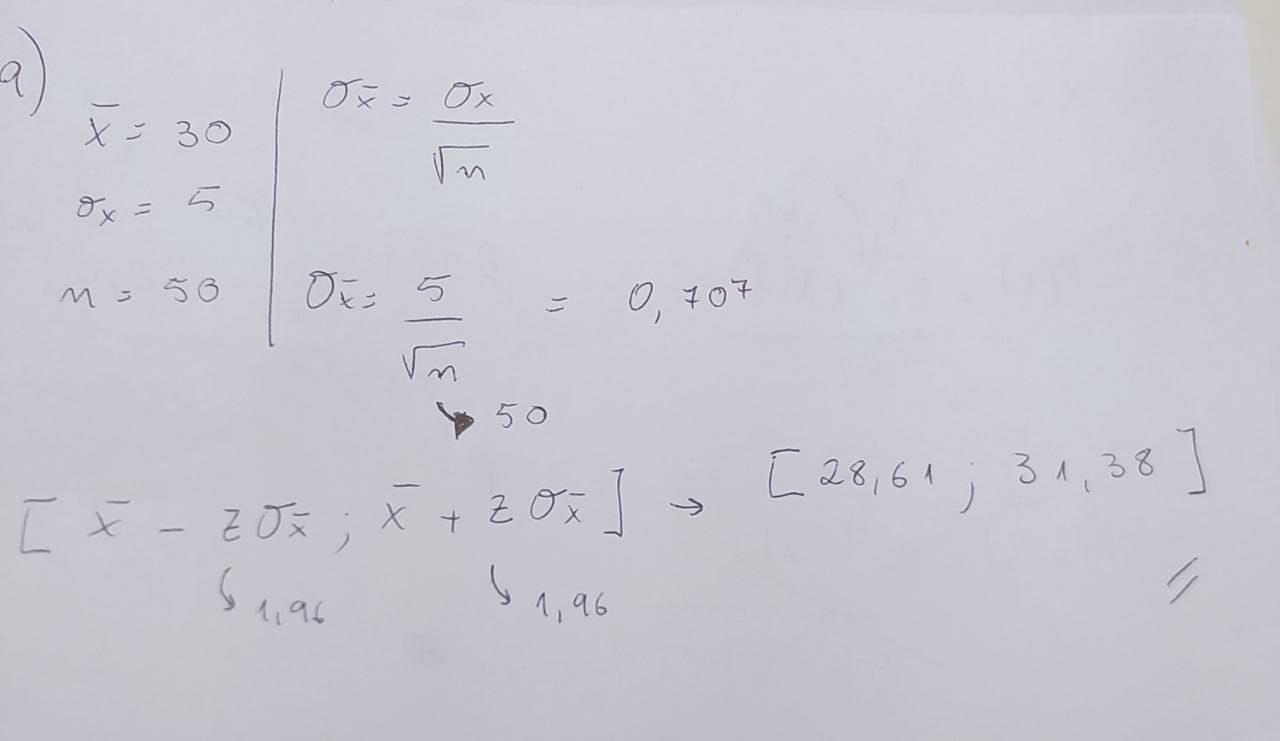 a)
x̄ = 30
σx = 5
n = 50
σx̄ = σx / √n
σx̄ = 5 / √n = 0,707
↘ 50
[ x̄ - zσx̄ ; x̄ + zσx̄ ] → [ 28,61 ; 31,38 ]
↳ 1,96 ↳ 1,96
//